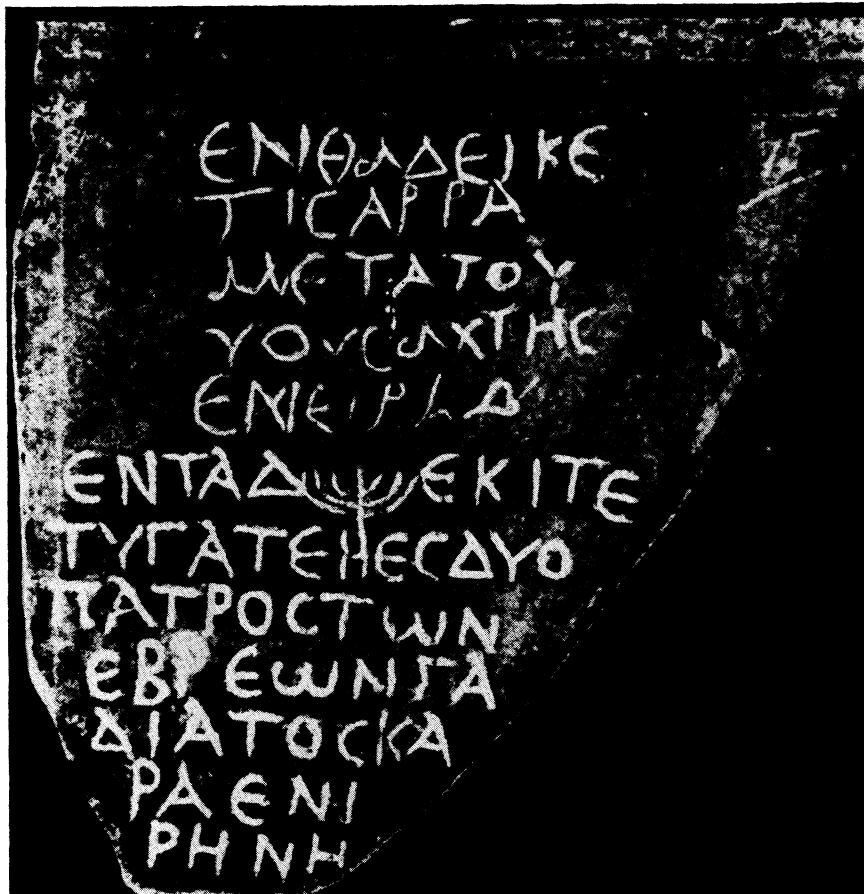 ΕΝΘΑΔΕΙΚΕ
ΤΙCΑΡΡΑ
ΜΕΤΑΤΟΥ
ΥΟΥCΑΧΤΗC
ΕΝΕΙΡ
ΕΝΤΑΔ ΕΚΙΤΕ
ΤΥΓΑΤΕΗΕCΔΥΟ
ΠΑΤΡΟCΤωΝ
ΕΒΡΕωΝΓΑ
ΔΙΑΤΟCΚΑ
ΡΑΕΝΙ
ΡΗΝΗ